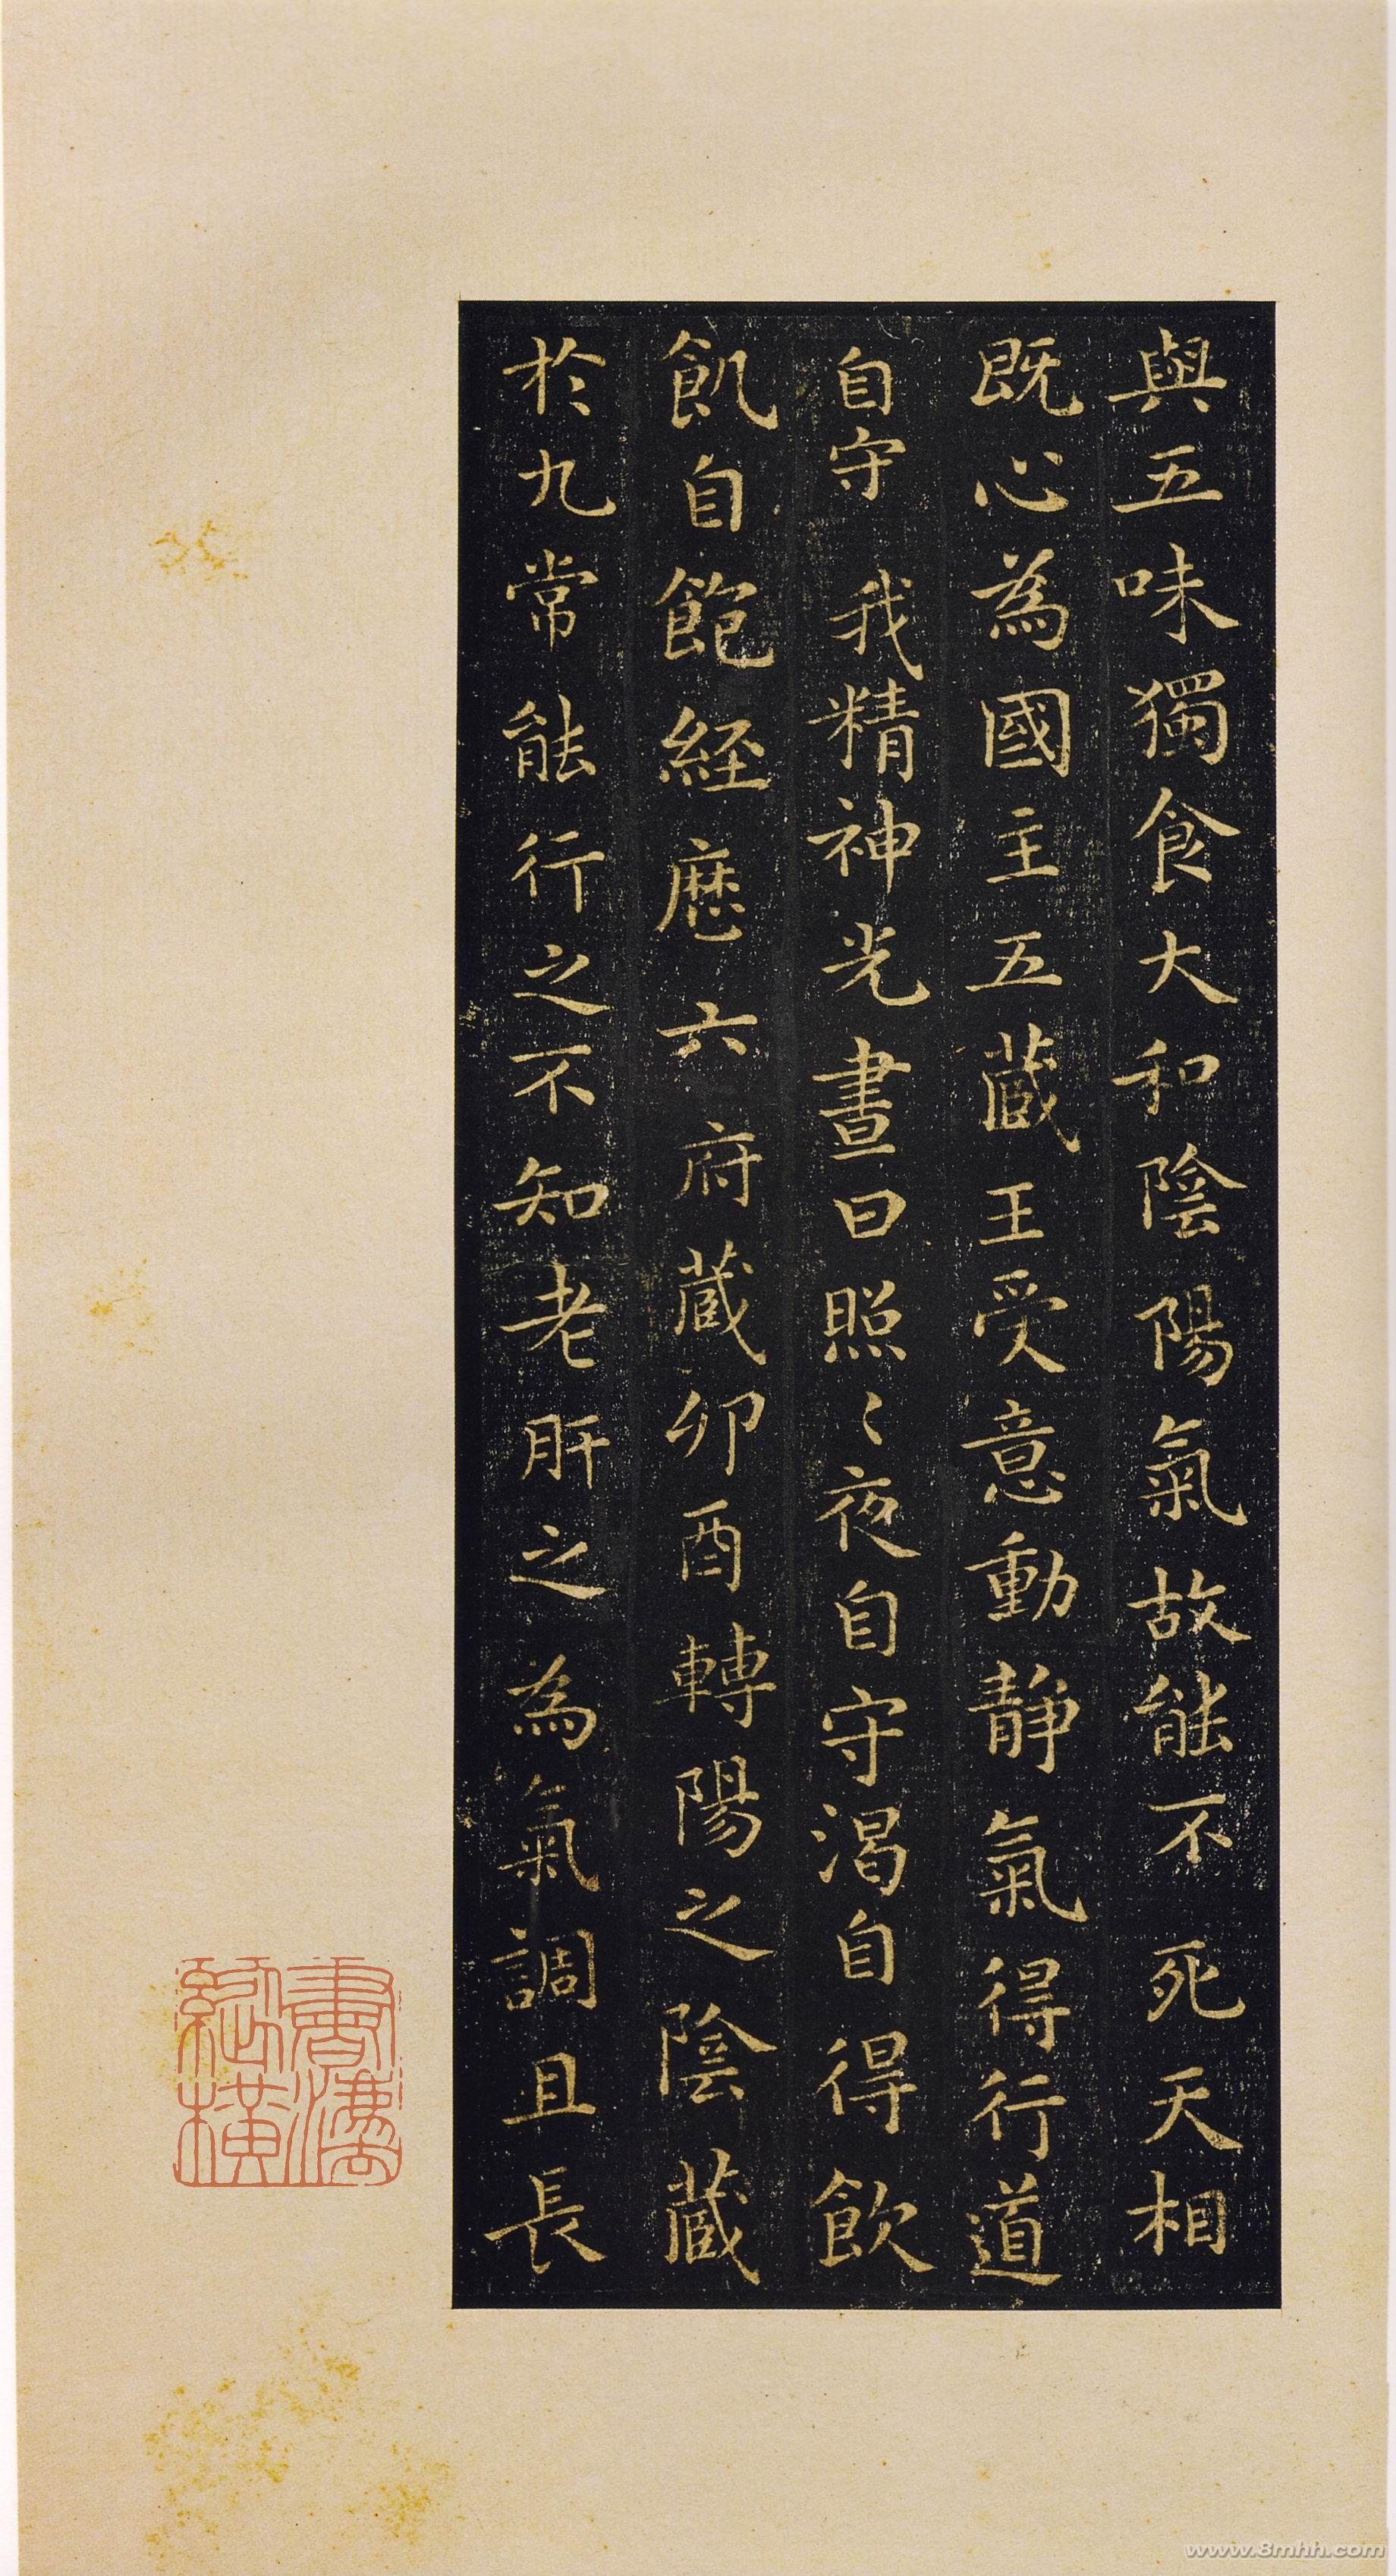 與五味獨食大和陰陽氣故能不死天相
既心為國主五藏王受意動静氣得行道
自守我精神光晝日照〻夜自守渴自得飲
飢自飽經歴六府藏卯酉轉陽之陰藏
於九常能行之不知老肝之為氣調且長
www.8mhh.com